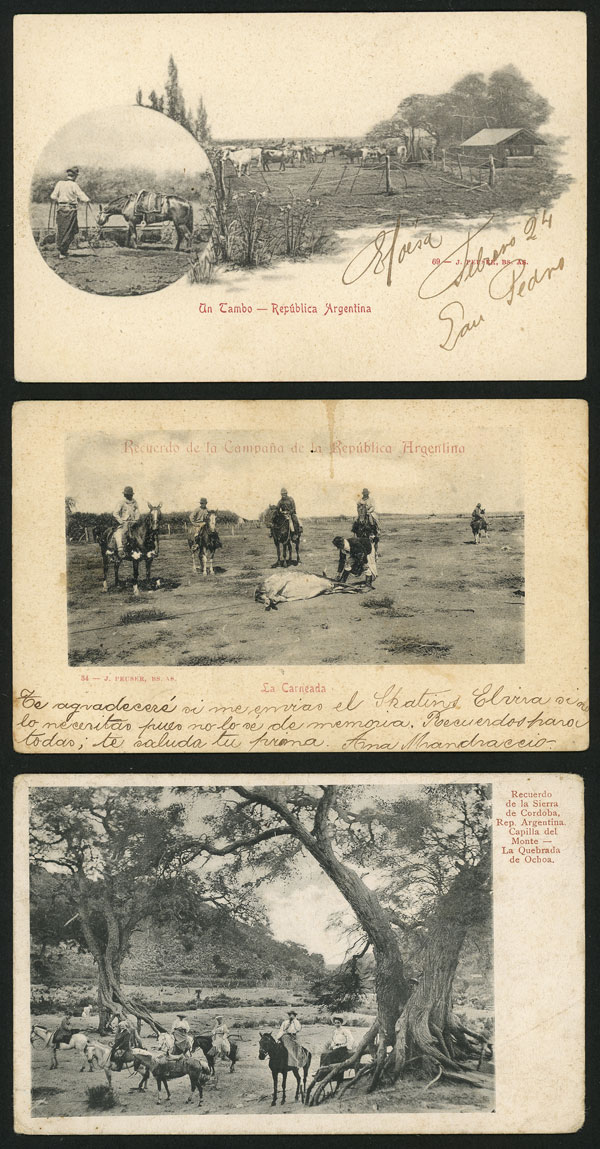 Eloisa Febrero 24
69 — J. PEUSER, BS. AS.
San Pedro
Un Tambo — República Argentina
Recuerdo de la Campaña de la República Argentina
34 — J. PEUSER, BS. AS.
La Carneada
Te agradeceré si me envias el Skating Elvira si no
lo necesitas pues no lo sé de memoria. Recuerdos para
todas; te saluda tu prima Ana Mandraccio
Recuerdo
de la Sierra
de Cordoba,
Rep. Argentina.
Capilla del
Monte —
La Quebrada
de Ochoa.